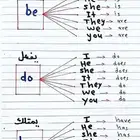 be
She is
It is
They are
we are
you are
يفعل
do
I do
He does
she does
It does
They do
we do
you do
يمتلك
I have
He has
she has
It has